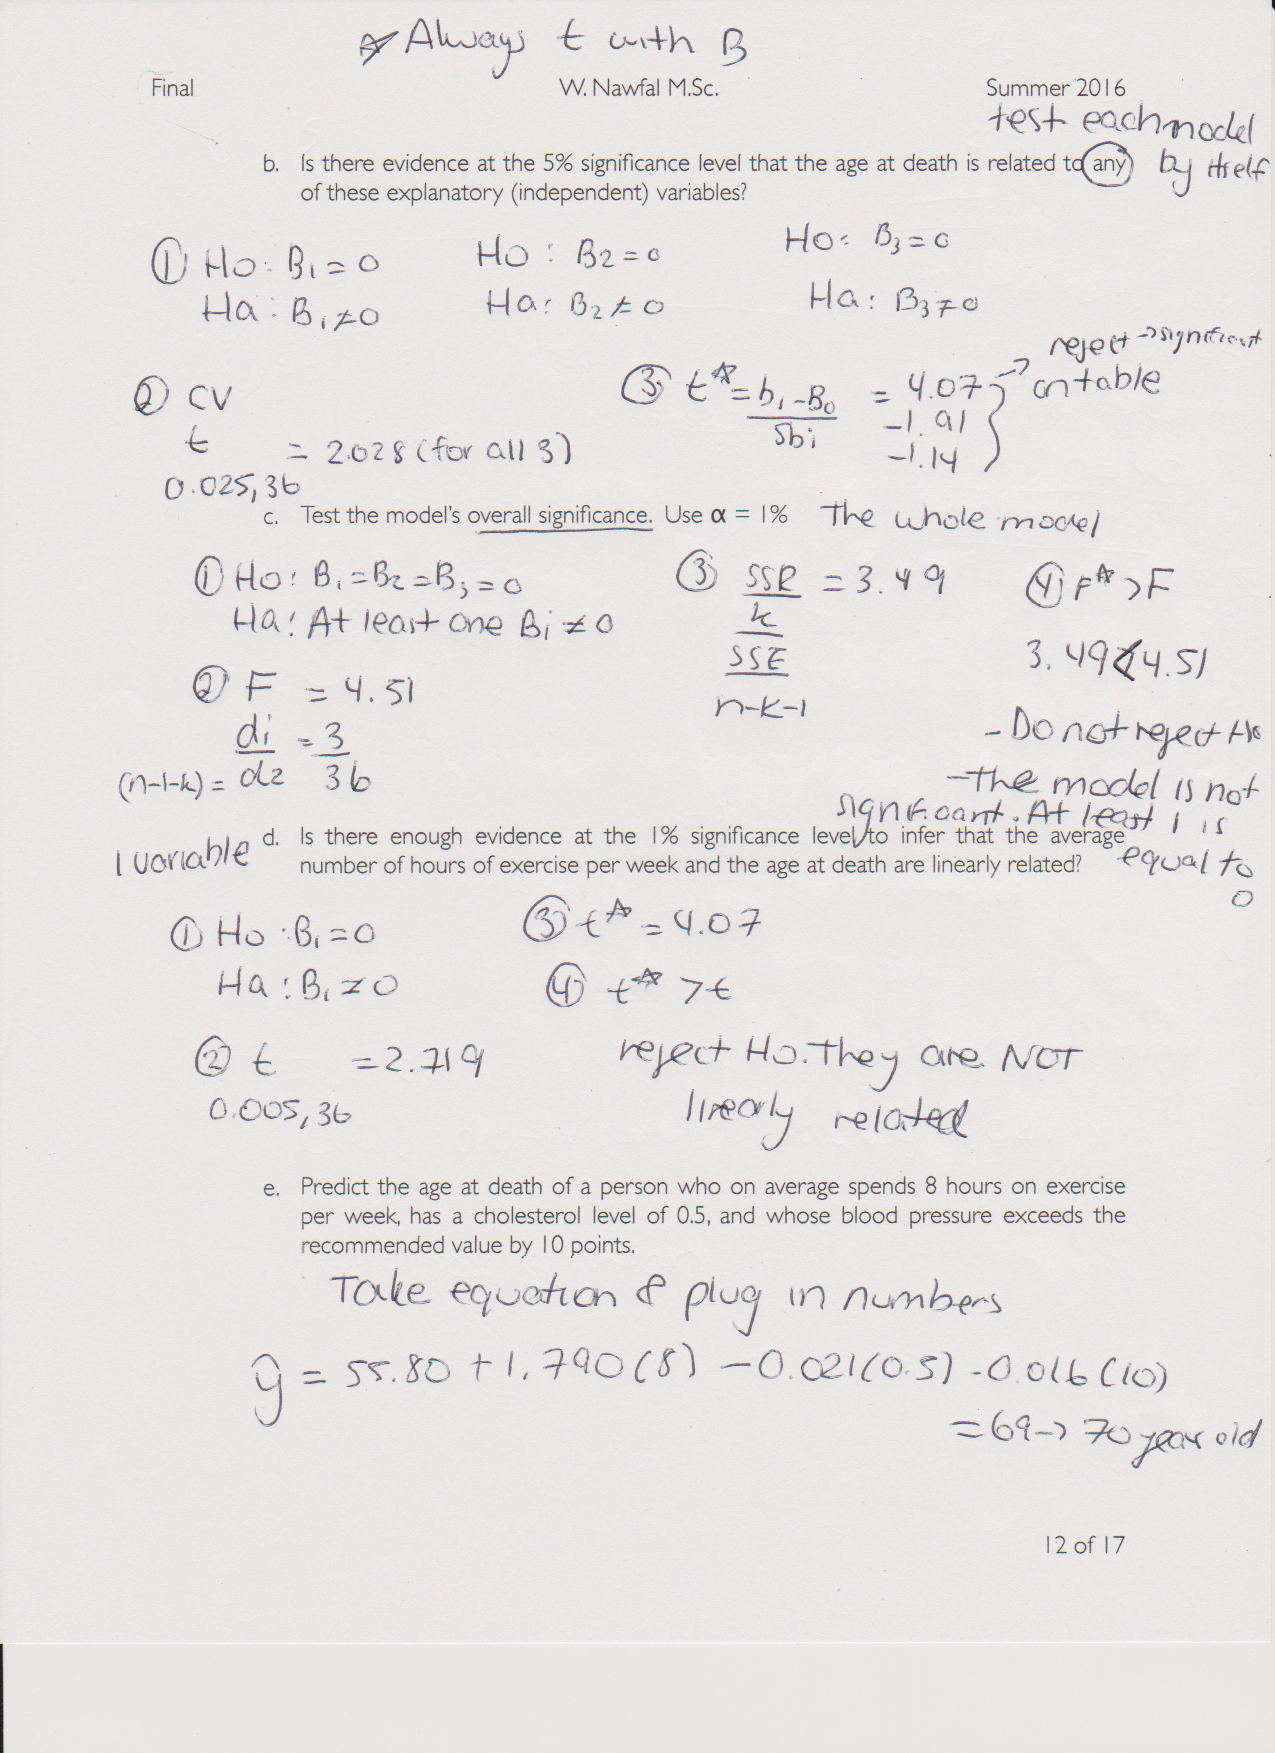 ☆ Always t with B
Final W. Nawfal M.Sc. Summer 2016
test each model
by itself
b. Is there evidence at the 5% significance level that the age at death is related to any
of these explanatory (independent) variables?
① Ho: B1 = 0 Ho: B2 = 0 Ho: B3 = 0
Ha: B1 ≠ 0 Ha: B2 ≠ 0 Ha: B3 ≠ 0
② CV
t = 2.028 (for all 3)
0.025, 36
③ t* = b1 - B0 = 4.07 → reject → significant
Sbi -1.91 on table
-1.14
c. Test the model's overall significance. Use α = 1% The whole model
① Ho: B1 = B2 = B3 = 0
Ha: At least one Bi ≠ 0
② F = 4.51
d1 = 3
(n-1-k) = d2 36
③ SSR = 3.49
k
SSE
n-k-1
④ F* > F
3.49 < 4.51
- Do not reject Ho
- The model is not
significant. At least 1 is
equal to
0
1 variable
d. Is there enough evidence at the 1% significance level to infer that the average
number of hours of exercise per week and the age at death are linearly related?
① Ho: B1 = 0
Ha: B1 ≠ 0
② t = 2.719
0.005, 36
③ t* = 4.07
④ t* > t
reject Ho. They are NOT
linearly related
e. Predict the age at death of a person who on average spends 8 hours on exercise
per week, has a cholesterol level of 0.5, and whose blood pressure exceeds the
recommended value by 10 points.
Take equation & plug in numbers
ŷ = 55.80 + 1.790(8) - 0.021(0.5) - 0.016(10)
= 69 → 70 year old
12 of 17